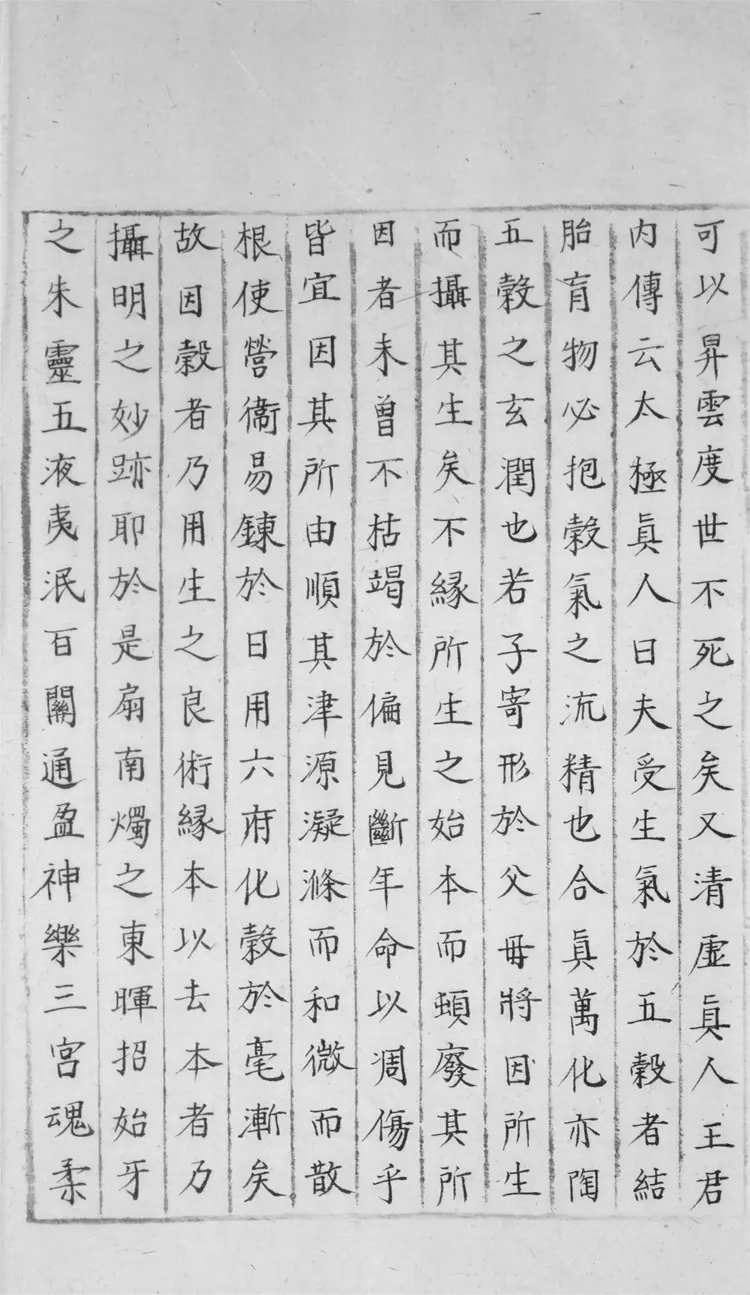 可以昇雲度世不死之矣又清虛眞人王君
内傳云太極眞人曰夫受生氣於五穀者結
胎育物必抱穀氣之流精也合眞萬化亦陶
五穀之玄潤也若子寄形於父毋將因所生
而攝其生矣不緣所生之始本而頓廢其所
因者未曾不枯竭於偏見斷年命以凋傷乎
皆宜因其所由順其津源凝滌而和微而散
根使營衞易鍊於日用六府化穀於毫漸矣
故因穀者乃用生之良術緣本以去本者乃
攝明之妙跡耶於是扇南燭之東暉招始牙
之朱靈五液夷泯百關通盈神樂三宮魂柔